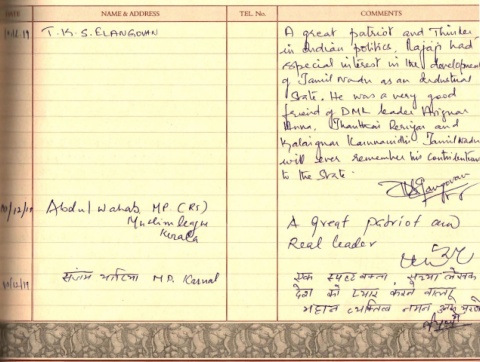 DATE NAME & ADDRESS TEL. No. COMMENTS
T.K.S. ELANGOVAN
A great patriot and Thinker
in Indian politics, Rajaji had
especial interest in the development
of Tamil Nadu as an industrial
State. He was a very good
friend of DMK leader Arignar
Anna, Thanthai Periyar and
Kalaignar Karunanidhi. Tamil Nadu
will ever remember his contribution
to the State.
Abdul Wahab MP (RS)
Muslim league
Kerala
A great patriot and
Real leader
संजय भाटिया MP. Karnal
एक स्पष्ट वक्ता, सच्चा लेखक
देश को प्यार करने वाला
महान व्यक्तित्व नमन